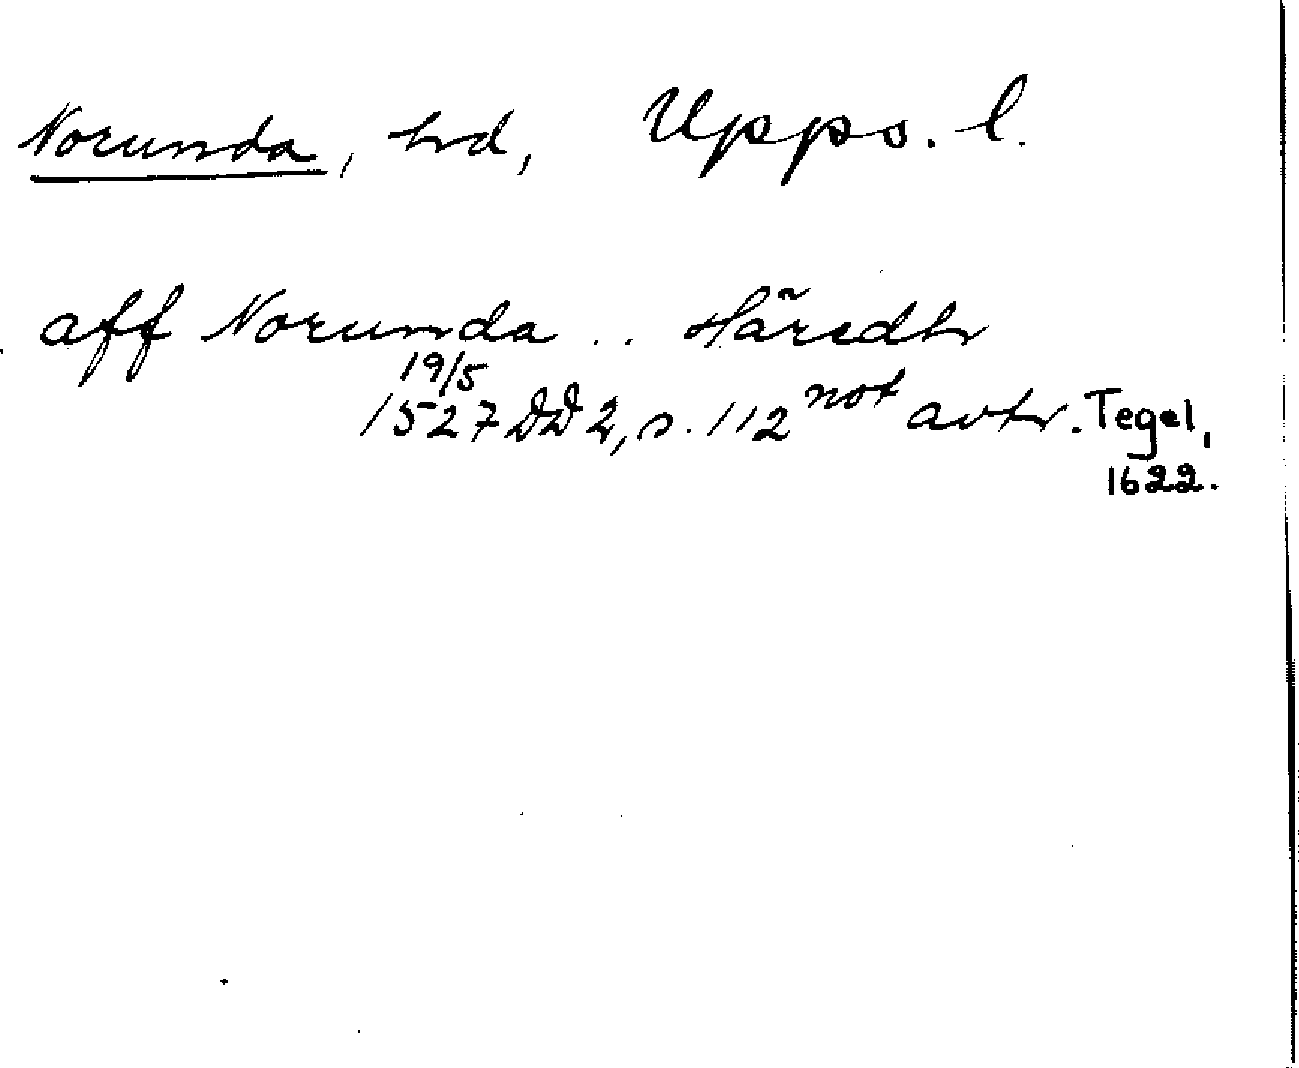 Norunda, hd, Upps. l.
aff Norunda .. Häredh
19/5
1527 DD 2, s. 112 not avtr. Tegel,
1622.